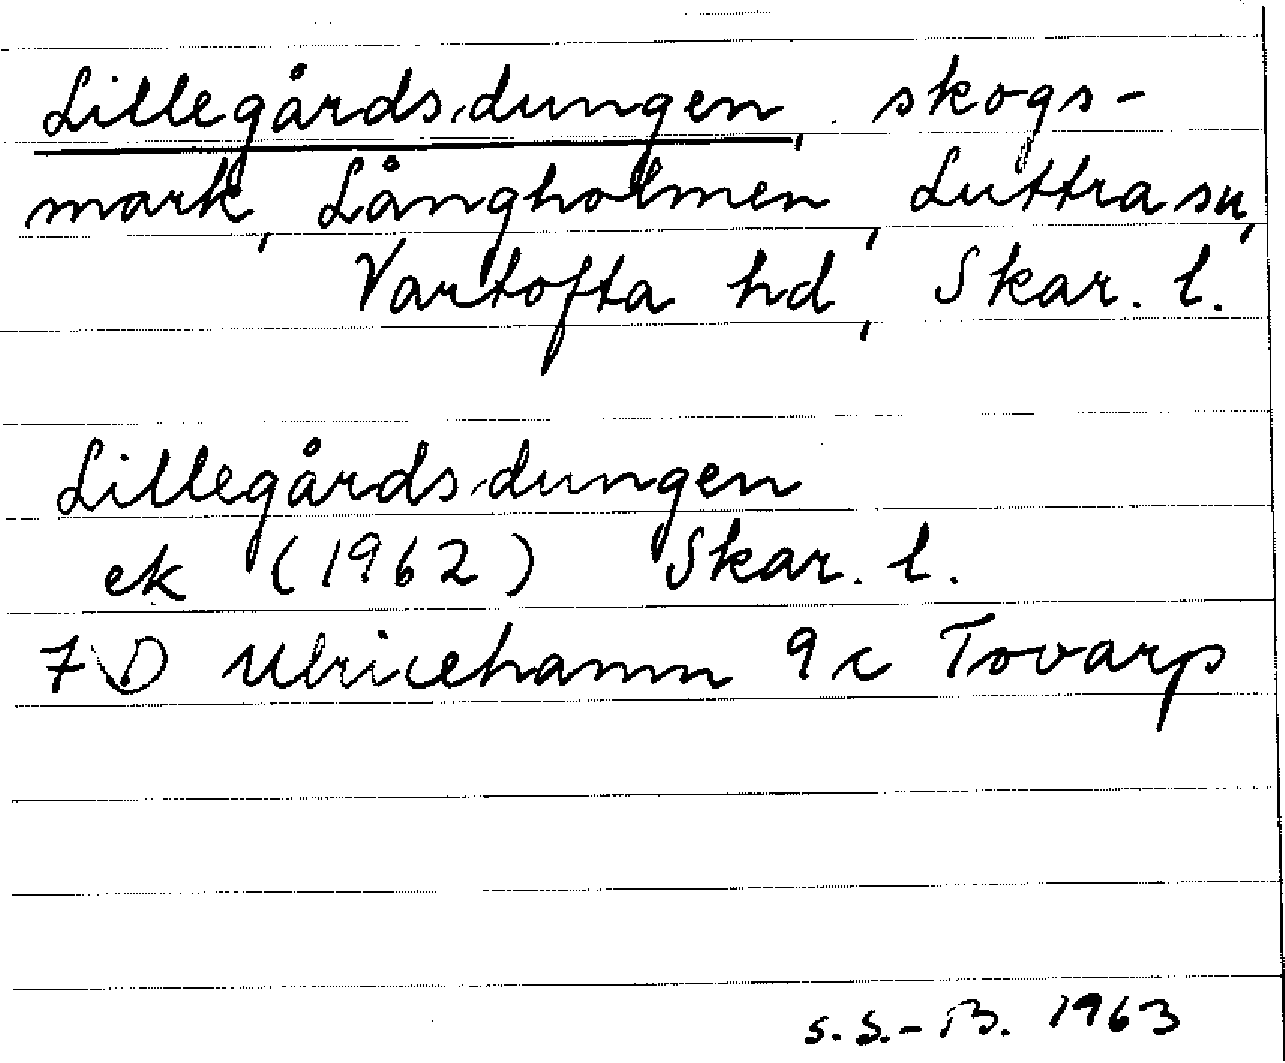 Lillegårdsdungen, skogs-
mark, Långholmen, Luttra sn,
Vartofta hd, Skar. l.
Lillegårdsdungen
ek (1962) Skar. l.
7 D Ulricehamn 9 c Tovarp
S.S.-B. 1963